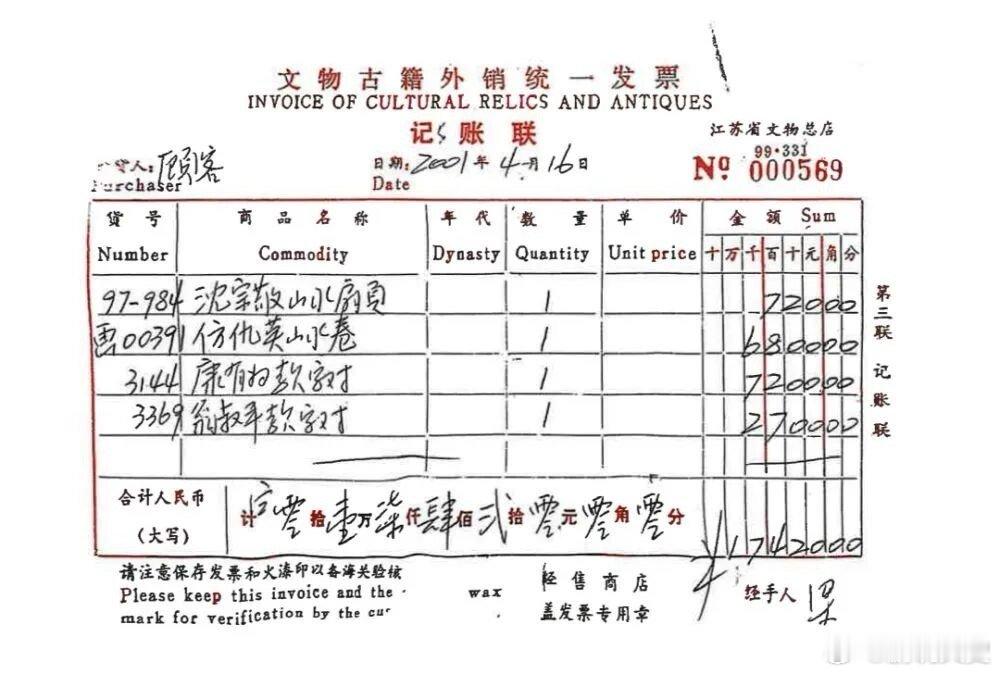 文物古籍外销统一发票
INVOICE OF CULTURAL RELICS AND ANTIQUES
记账联
江苏省文物总店
货人: 顾客 日期: 2001年4月16日 99·331
Purchaser Date Nº 000569
货号 商品名称 年代 数量 单价 金额 Sum
Number Commodity Dynasty Quantity Unit price 十万千百十元角分
97-984 沈宗敬山水扇页 1 72000
画00391 仿仇英山水卷 1 680000
3144 康有为款字对 1 720000
3369 翁叔平款字对 1 270000
合计人民币(大写) 计 零拾壹万柒仟肆佰贰拾零元零角零分 ¥1742000
请注意保存发票和火漆印以备海关验核 经售商店 经手人
Please keep this invoice and the wax 盖发票专用章
mark for verification by the cu
第三联 记账联